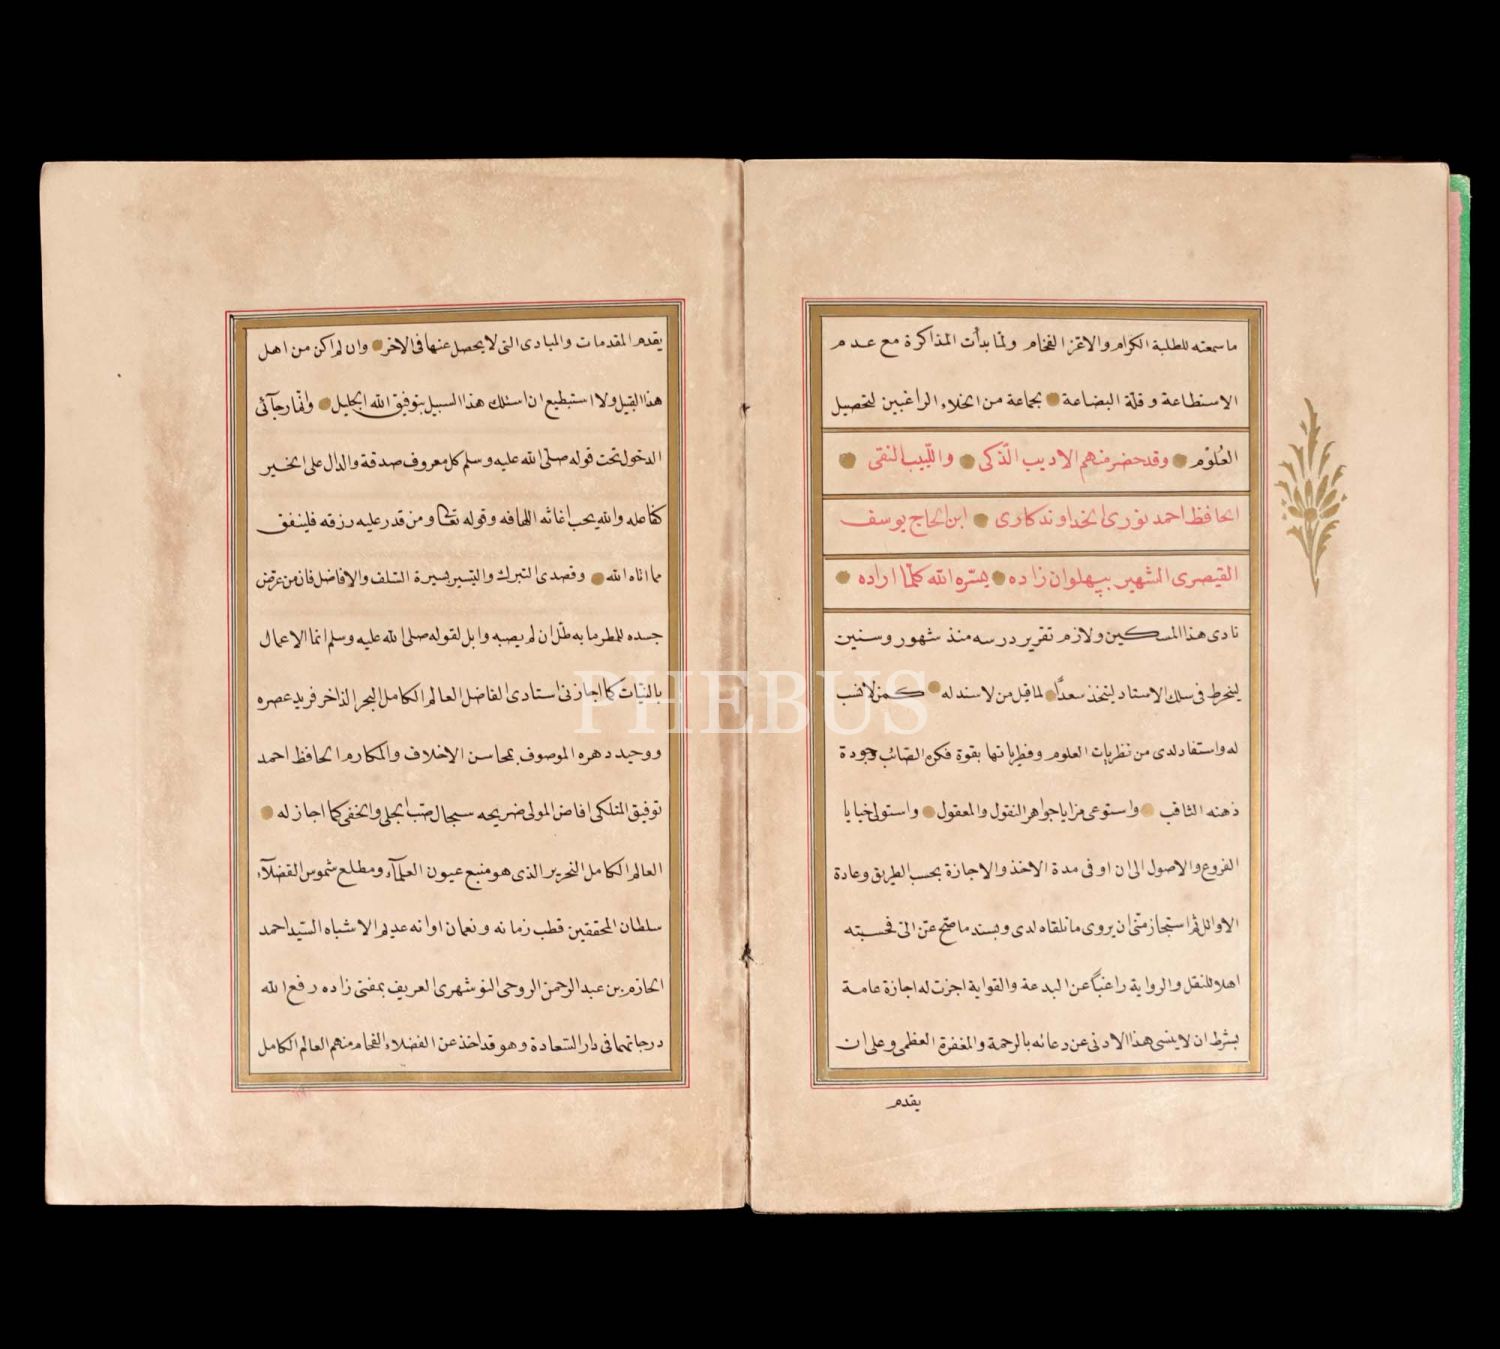 ما سمعته للطلبة الكرام والاعز الفخام ولما بدأت المذاكرة مع عدم
الاستطاعة وقلة البضاعة بجماعة من الخلاء الراغبين لتحصيل
العلوم وقد حضر منهم الاديب الذكى واللبيب النقى
الحافظ احمد نورى الخداوندكارى ابن الحاج يوسف
القيصرى الشهير بپهلوان زاده يسره الله كلما اراده
نادى هذا المسكين ولازم تقرير درسه منذ شهور وسنين
لينخرط فى سلك الاستاد ليتخذ سعدا لما قيل من لا سند له كمن لا نسب
له واستفاد لدى من نظريات العلوم وفطرياتها بقوة فكره الصائب وجودة
ذهنه الثاقب واستوعى مزايا جواهر النقول والمعقول واستولى خبايا
الفروع والاصول الى ان اوفى مدة الاخذ والاجازة بحسب الطريق وعادة
الاوائل ثم استجاز منى ان يروى ما تلقاه لدى ويسند ما صح عن الى فحسبته
اهلا للنقل والرواية راغبا عن البدعة والغواية اجزت له اجازة عامة
بشرط ان لا ينسى هذا الادنى عن دعائه بالرحمة والمغفرة العظمى وعلى ان
يقدم
يقدم المقدمات والمبادى التى لا يحصل عنها فى الاخر وان لم اكن من اهل
هذا القبيل ولا استطيع ان اسئلك هذا السبيل بتوفيق الله الجليل وانما رجآئى
الدخول تحت قوله صلى الله عليه وسلم كل معروف صدقة والدال على الخير
كفاعله والله يحب اغاثه اللهافه وقوله تعالى ومن قدر عليه رزقه فلينفق
مما اتاه الله وقصدى التبرك والتيسير بسيرة السلف والافاضل فان من عرض
جسده للمطر ما به طل ان لم يصبه وابل لقوله صلى الله عليه وسلم انما الاعمال
بالنيات كما اجازنى استادى الفاضل العالم الكامل البحر الذاخر فريد عصره
ووحيد دهره الموصوف بمحاسن الاخلاف والمكارم الحافظ احمد
توفيق افاض المولى ضريحه سجال صب الجلى والخفى كما اجاز له
العالم الكامل النحرير الذى هو منبع عيون العلمآء ومطلع شموس الفضلآء
سلطان المحققين قطب زمانه ونعمان اوانه عديم الاشباه السيد احمد
الحازم بن عبد الرحمن الروحى النوشهرى العريف بمفتى زاده رفع الله
درجاتهما فى دار السعادة وهو قد اخذ عن الفضلاء الفخام منهم العالم الكامل
PHEBUS